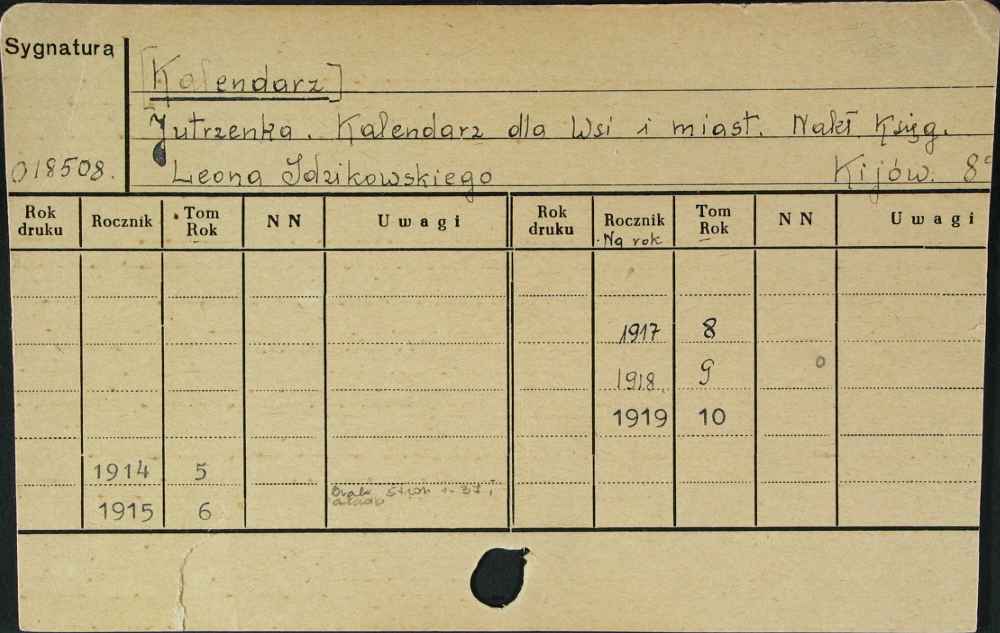 Sygnatura
[Kalendarz]
Jutrzenka. Kalendarz dla Wsi i miast. Nakł Księg.
018508. Leona Idzikowskiego Kijów. 8°
Rok druku Rocznik Tom Rok N N Uwagi Rok druku Rocznik Na rok Tom Rok N N Uwagi
1917 8
1918 9
1919 10
1914 5
1915 6 Brak stron 1-32 i